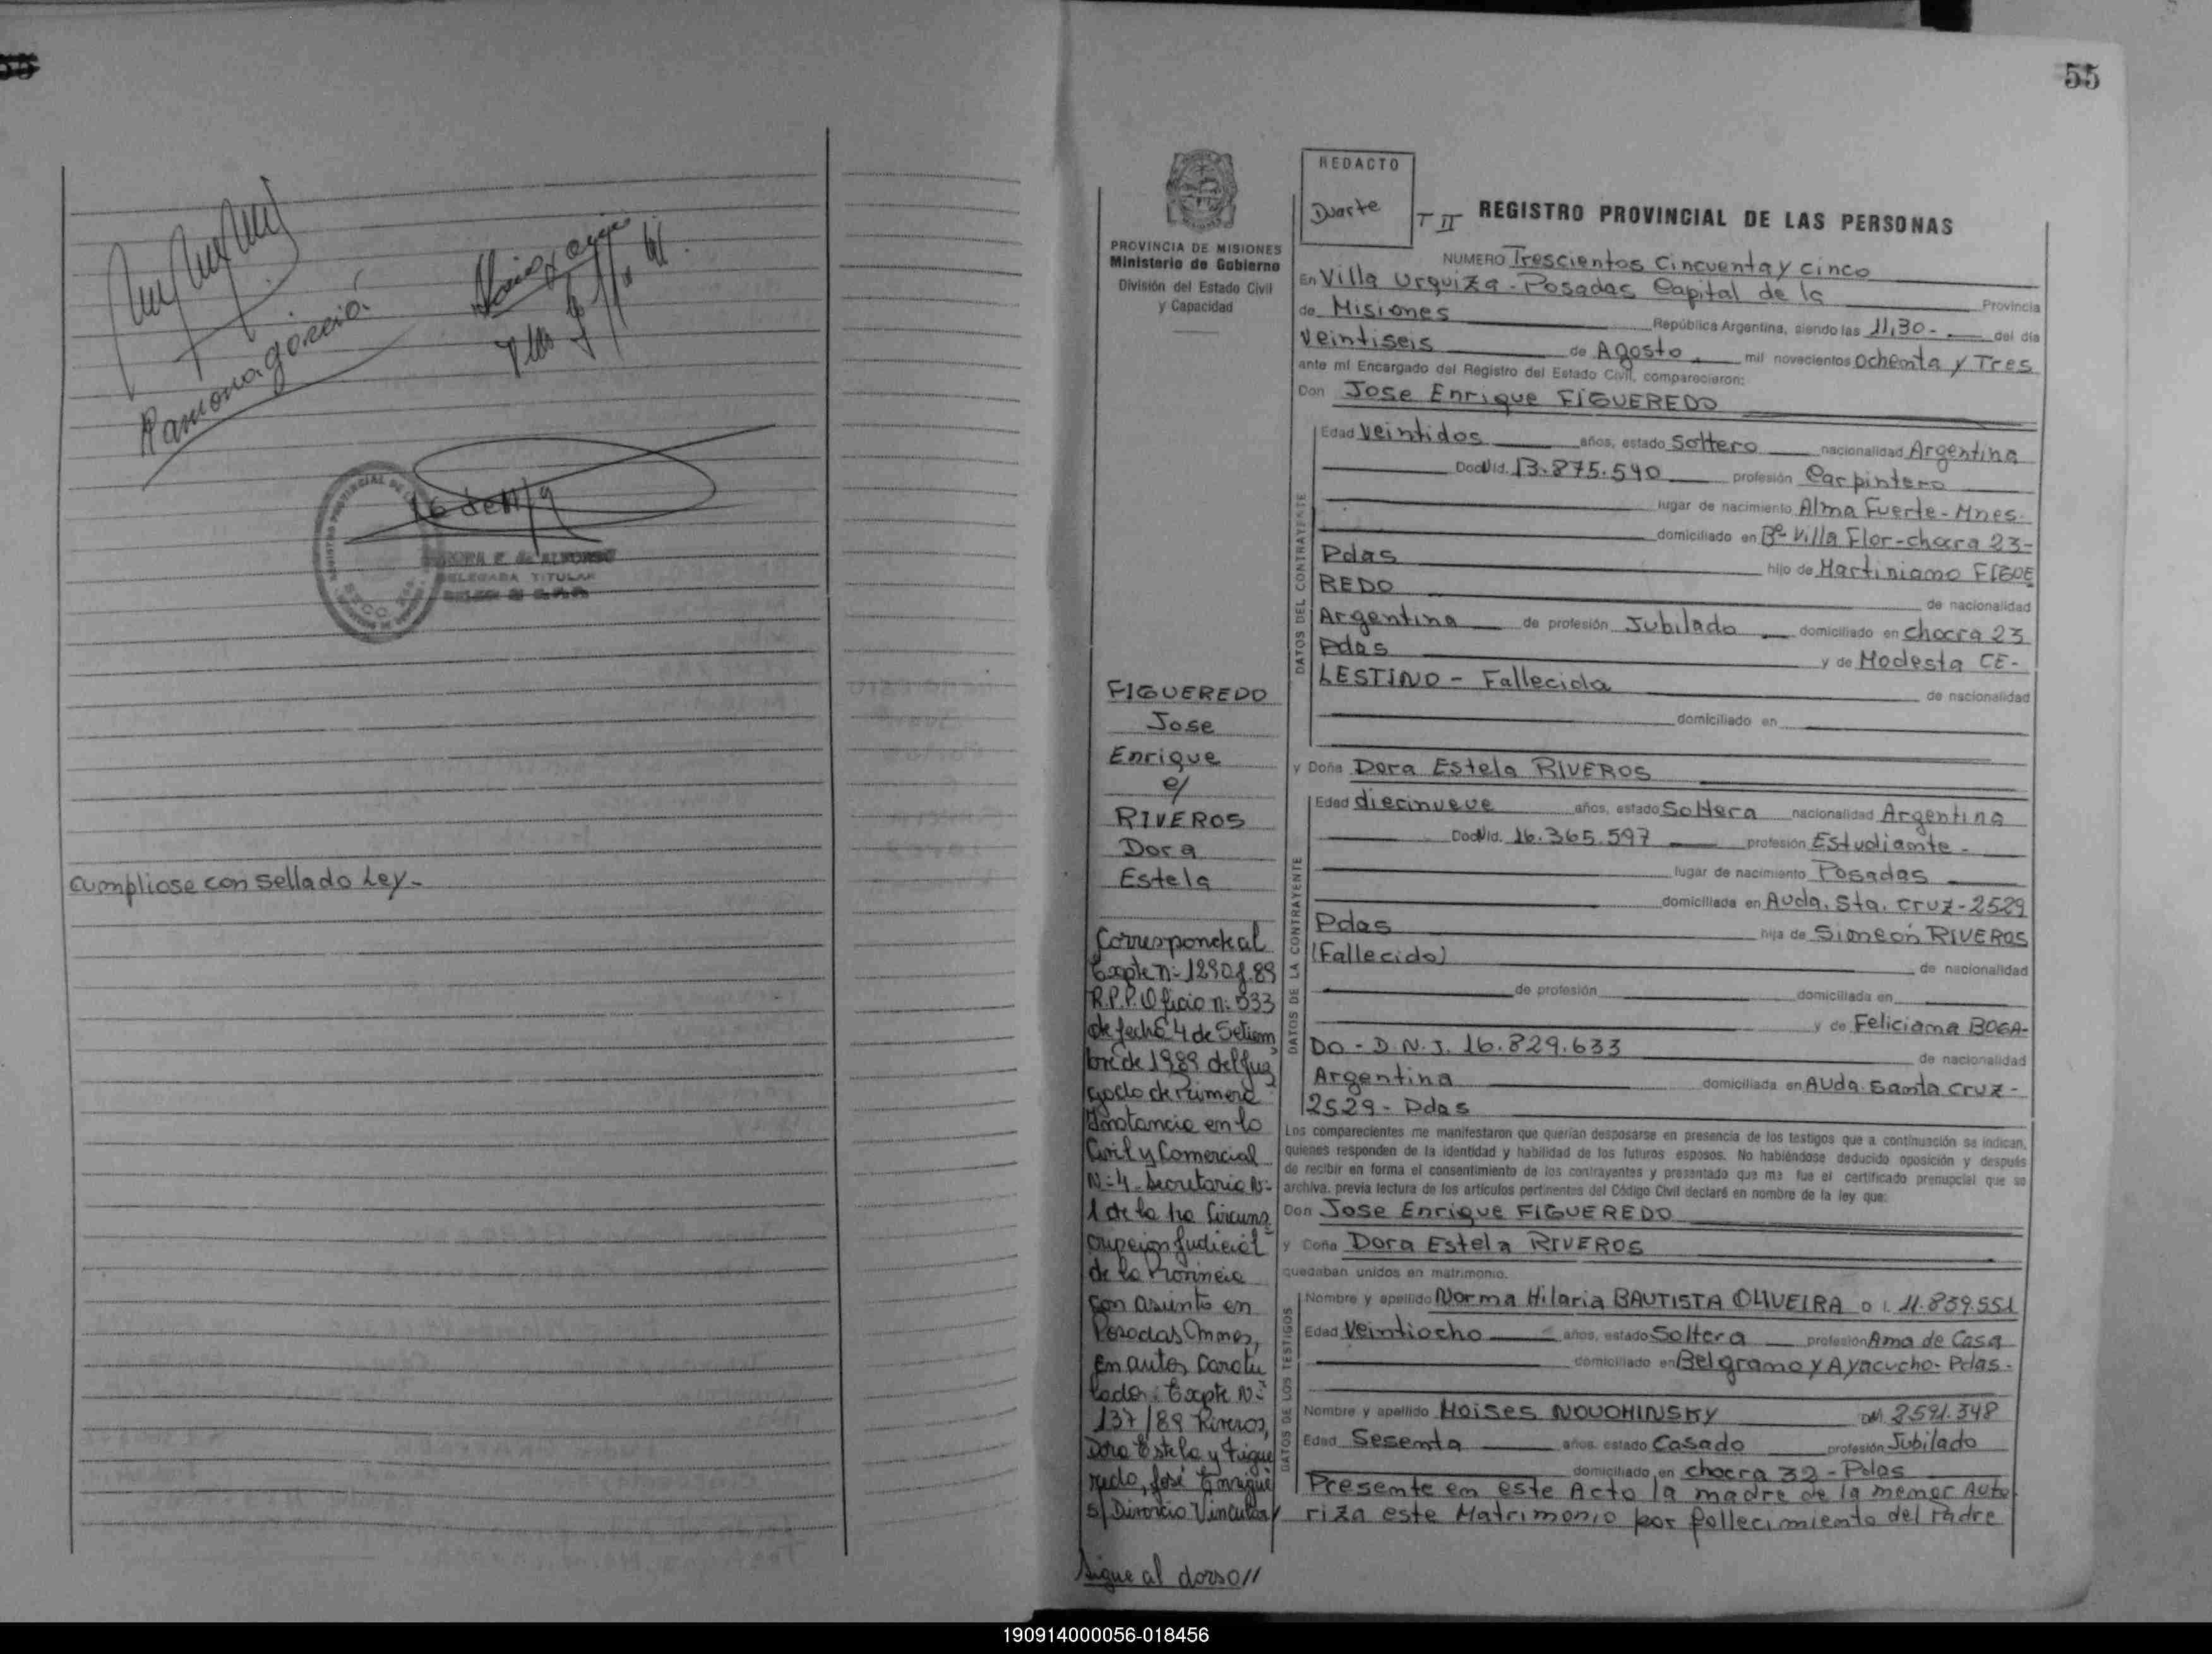 55
Ramona garcia
cumpliose con sellado Ley-
55
REDACTO
Duarte
T II
REGISTRO PROVINCIAL DE LAS PERSONAS
PROVINCIA DE MISIONES
Ministerio de Gobierno
División del Estado Civil
y Capacidad
NUMERO Trescientos Cincuenta y cinco
En Villa Urquiza - Posadas Capital de la Provincia
de Misiones República Argentina, siendo las 11,30 - del día
veintiseis de Agosto mil novecientos ochenta y Tres
ante mí Encargado del Registro del Estado Civil, comparecieron:
Don Jose Enrique FIGUEREDO
DATOS DEL CONTRAYENTE
Edad veintidos años, estado Soltero nacionalidad Argentina
Doc. Id. 13.875.540 profesión Carpintero
lugar de nacimiento Alma Fuerte - Mnes.
domiciliado en Bº Villa Flor - chacra 23 -
Pdas hijo de Martiniano FIGUE
REDO de nacionalidad
Argentina de profesión Jubilado domiciliado en chacra 23
Pdas y de Modesta CE-
LESTINO - Fallecida de nacionalidad
domiciliado en
y Doña Dora Estela RIVEROS
DATOS DE LA CONTRAYENTE
Edad diecinueve años, estado Soltera nacionalidad Argentina
Doc. Id. 16.365.597 profesión Estudiante -
lugar de nacimiento Posadas
domiciliada en Avda. Sta. Cruz - 2529
Pdas hija de Simeón RIVEROS
(Fallecido) de nacionalidad
de profesión domiciliada en
y de Feliciana BOGA-
DO - D.N.I. 16.829.633 de nacionalidad
Argentina domiciliada en Avda. Santa Cruz -
2529 - Pdas
Los comparecientes me manifestaron que querían desposarse en presencia de los testigos que a continuación se indican,
quienes responden de la identidad y habilidad de los futuros esposos. No habiéndose deducido oposición y después
de recibir en forma el consentimiento de los contrayentes y presentado que me fue el certificado prenupcial que se
archiva, previa lectura de los artículos pertinentes del Código Civil declaré en nombre de la ley que:
Don Jose Enrique FIGUEREDO
y Doña Dora Estela RIVEROS
quedaban unidos en matrimonio.
DATOS DE LOS TESTIGOS
Nombre y apellido Norma Hilaria BAUTISTA OLIVEIRA D I. 11.839.551
Edad Veintiocho años, estado Soltera profesión Ama de Casa
domiciliado en Belgrano y Ayacucho - Pdas -
Nombre y apellido Moises NOVOMINSKY DNI 2591.348
Edad Sesenta años, estado Casado profesión Jubilado
domiciliado en chacra 32 - Pdas
Presente en este Acto la madre de la menor Auto
riza este Matrimonio por fallecimiento del Padre
FIGUEREDO
Jose
Enrique
c/
RIVEROS
Dora
Estela
Corresponde al
Expte nº 1290 f. 89
R.P.P. Oficio nº 533
de fecha 4 de Setiem
bre de 1989 del Juz
gado de Primera
Instancia en lo
Civil y Comercial
Nº 4 - Secretaria Nº
1 de la 1ra Circuns
cripcion Judicial
de la Provincia
con asiento en
Posadas Mnes,
en autos caratu
lados: Expte Nº
137/89 Riveros,
Dora Estela y Figue
redo, José Enrique
s/ Divorcio Vincular/
Sigue al dorso//
190914000056-018456